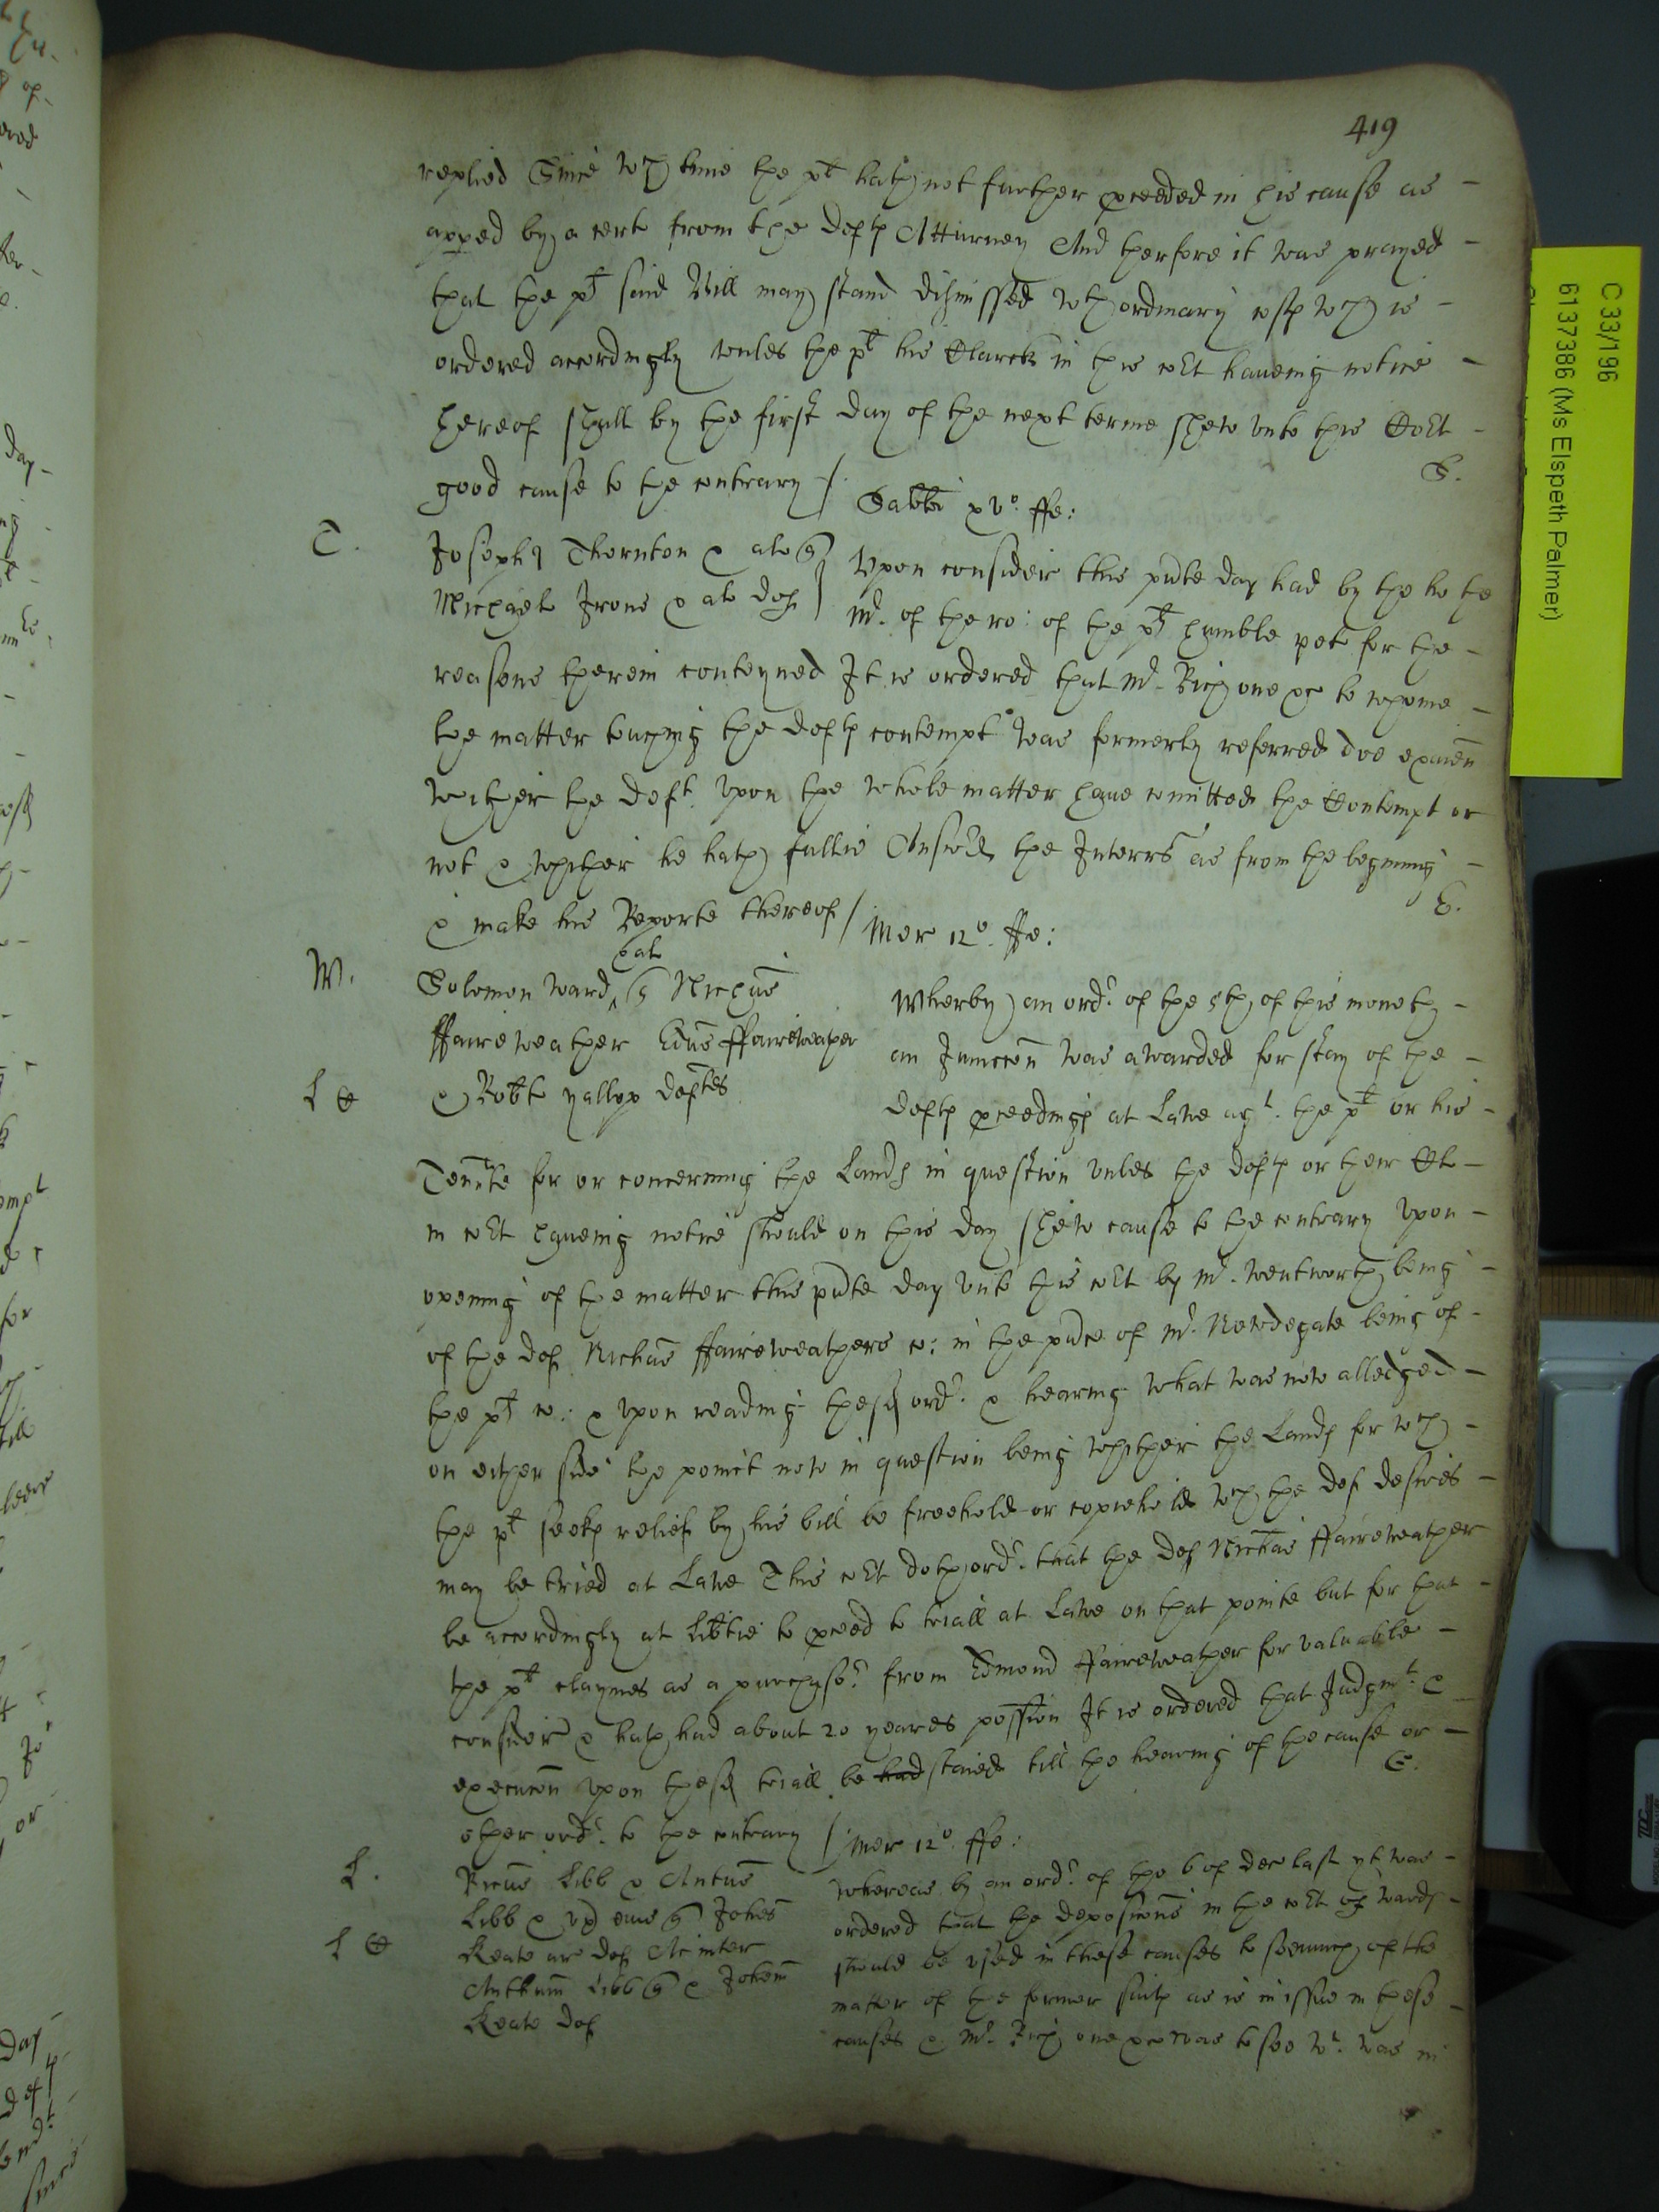 419
replied Since wch time the plt hath not further pceeded in his cause as
appeð by a cert from the defts Atturney And therfore it was prayed
that the plts said Bill may stand dismissed wth ordinary costs wch is
ordered accordingly unles the plt his Clarck in this cort haveing notice
hereof shall by the first day of the next terme shew unto this Cort
good cause to the contrary / S.
Sabbti xvo: ffe:
T. Joseph Thornton & al quer
Michaell Irons & al def
Upon consideir this pnte day had by the ho: the
Mr. of the ro: of the plts humble petn for the
reasons therein conteyned It is ordered that Mr. Rich one &c to whome
the matter touching the defts contempt was formerly referred doe examen
whether the deft. upon the whole matter have comitted the Contempt or
not & whether he hath fullie Answed the Interrs as from the begining
& make his Reporte thereof / E.
Mer 12o. ffe:
W. Solomon Ward & al quer Nichus
ffaireweather Edus ffaireweather
& Robte yallop deftes
L C
Wherby an ordr. of the 5th of this moneth
an Iniuccon was awarded for stay of the
defts pceedings at Lawe agt. the plt or his
Tennte for or concerning the Lands in question unles the defts or their Cl
in cort haveing notice should on this day shew cause to the contrary upon
opening of the matter this pnte day unto this cort by Mr. Wentworth being
of the def Nichas ffaireweathers co: in the pnce of Mr. Newdegate being of
the plts co: & upon reading the sd ordr. & hearing what was now alledged
on either side the point now in question being whether the Lands for wch
the plt seeks relief by his bill be freehold or copiehold wch the def desires
may be tried at Lawe This cort doth ordr. that the def Nichas ffaireweather
be accordingly at libtie to pceed to triall at Lawe on that pointe but for that
the plt claymes as a purchasor. from Edmond ffaireweather for valuable
consideir & hath had about 20 yeares possion It is ordered that Judgmt. &
execucon upon the sd triall be had staied till the hearing of the cause or
other ordr. to the contrary / E.
Mer 12o ffe:
L. Ricus Libb & Antus
Libb & ux eius quer Johes
Keate ar def Ac inter
Anthum Libb quer & Johem
Keate def
L C
Whereas by an ordr. of the 6 of Dec last yt was
ordered that the deposicons in the cort of wards
should be used in these causes to soe much of the
matter of the former suits as is in issue in these
causes & Mr. Rich one &c was to see wt. was in
C 33/196
6137386 (Ms Elspeth Palmer)